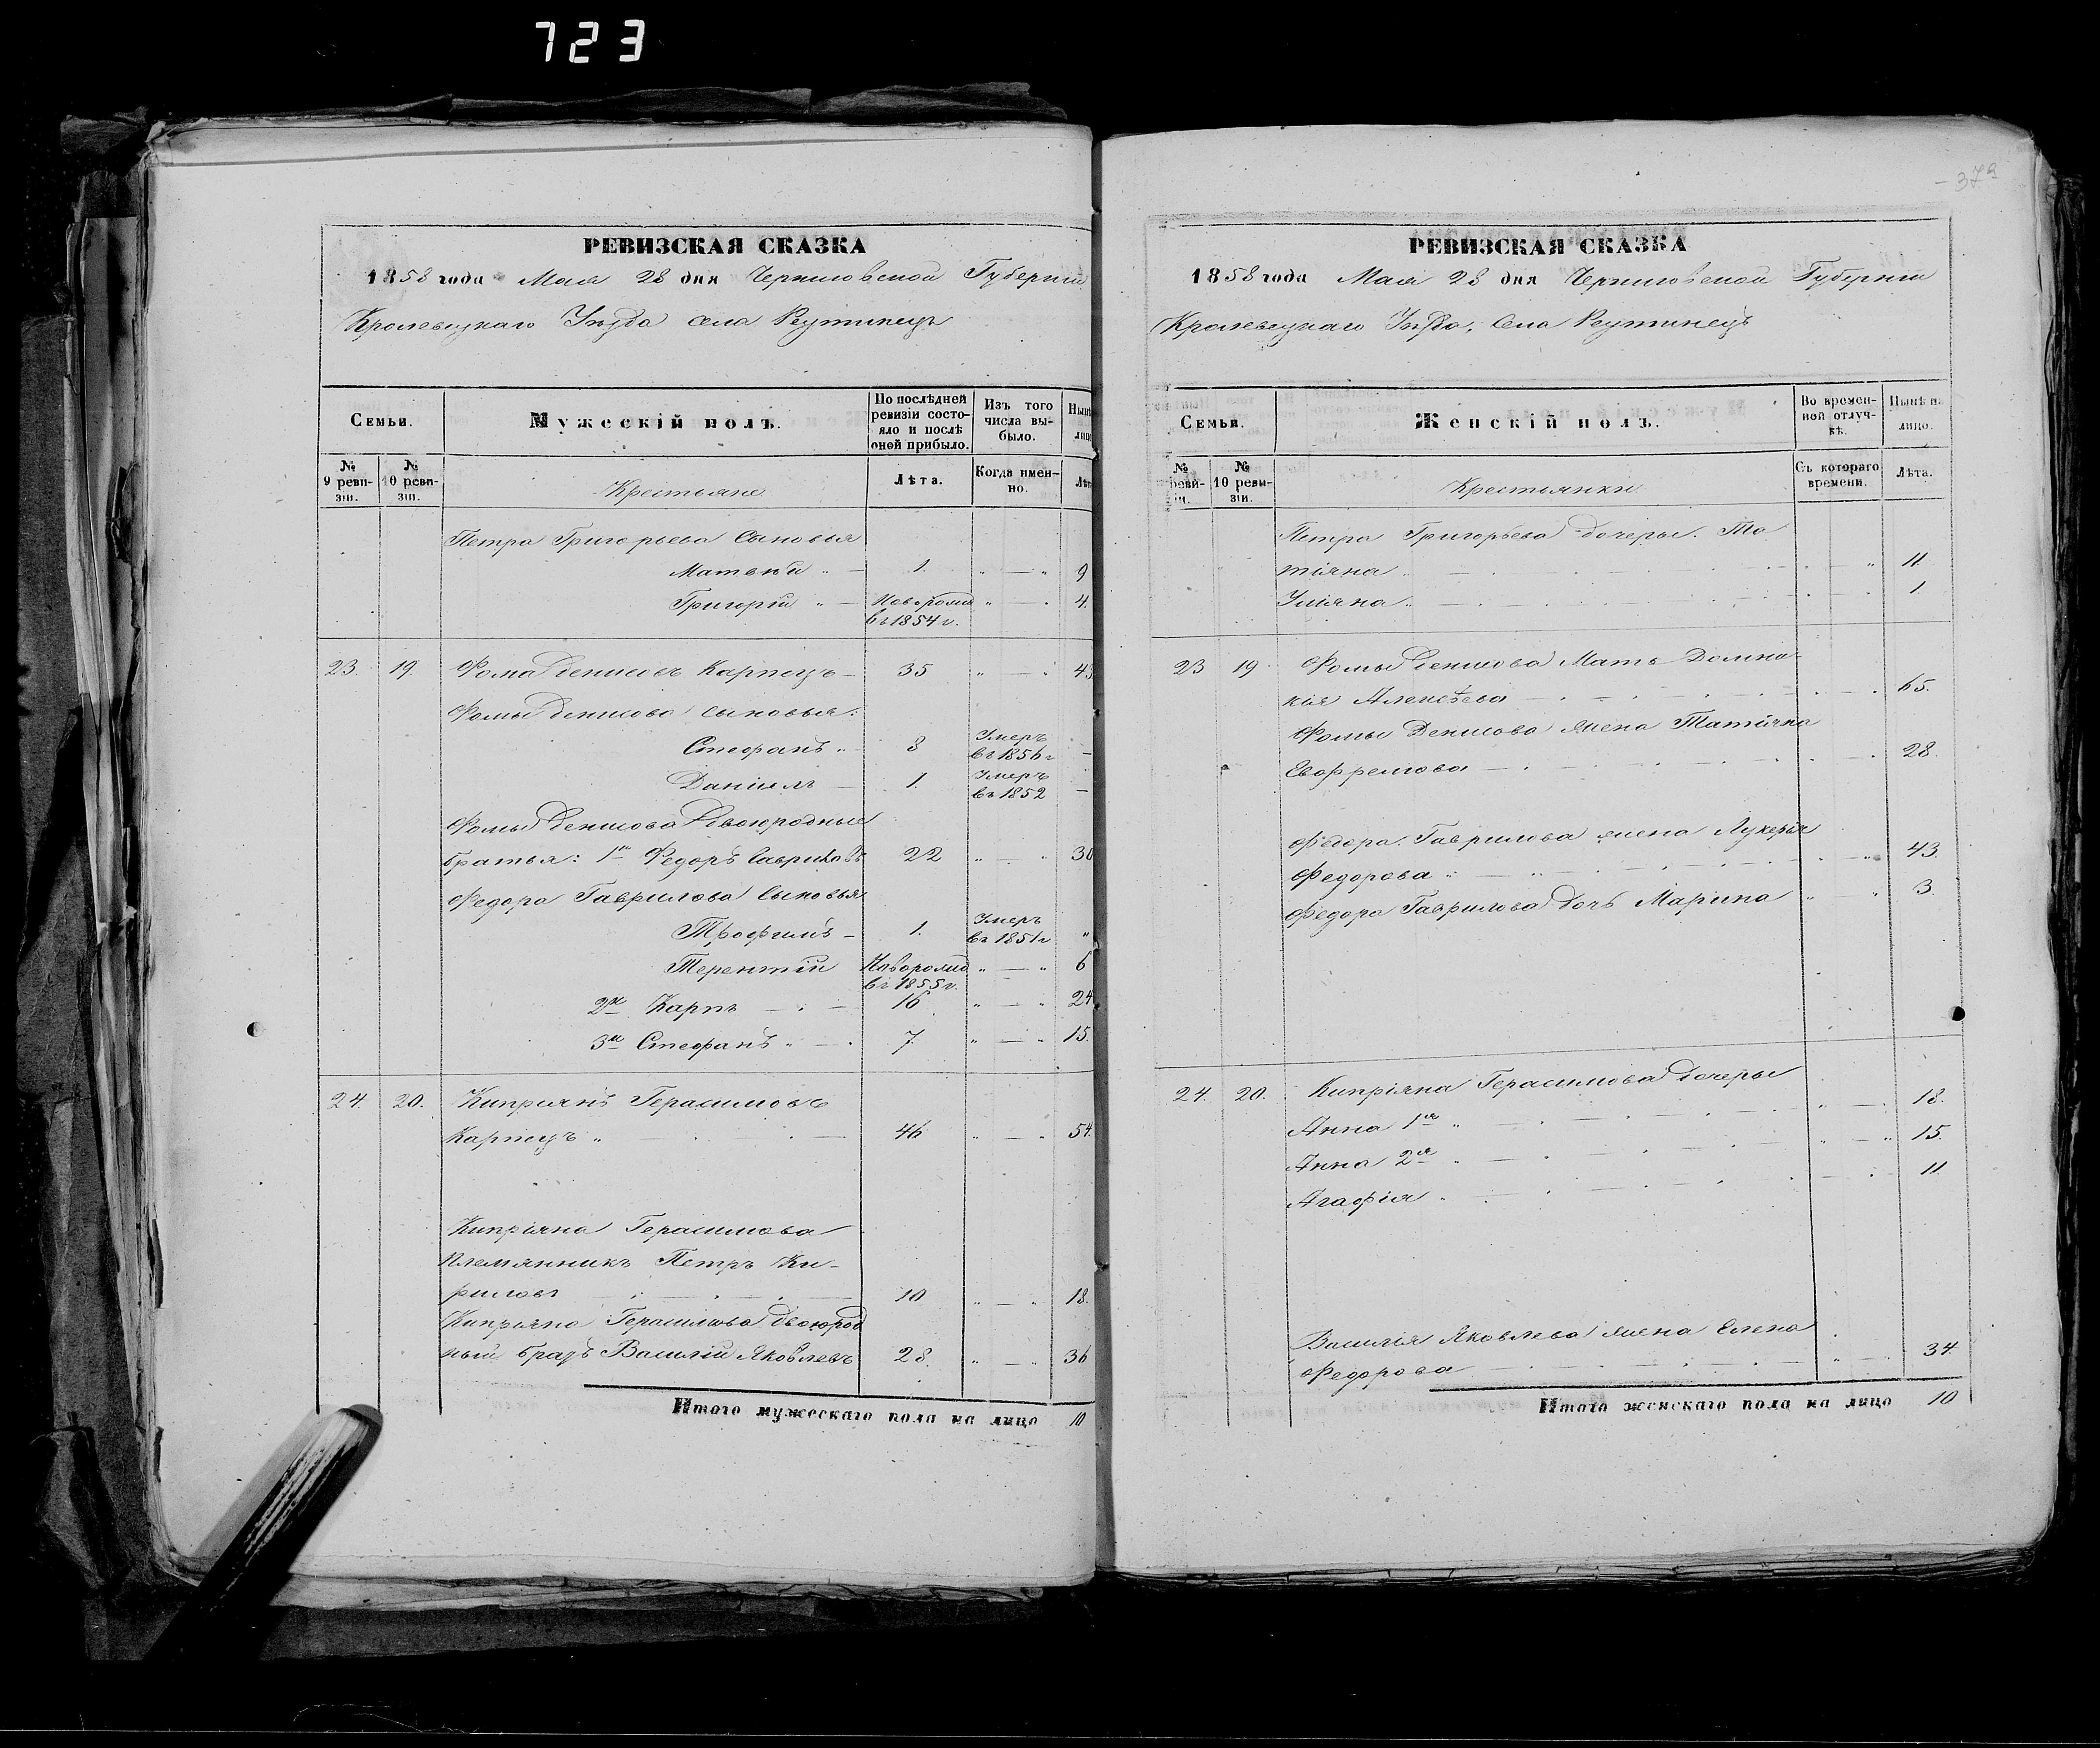 723
РЕВИЗСКАЯ СКАЗКА
1858 года Мая 28 дня Черниговской Губерніи
Кролевецкаго Уѣзда села Реутинецъ
Семьи.
Мужескій полъ.
По послѣдней ревизіи состояло и послѣ оной прибыло.
Изъ того числа выбыло.
№ 9 реви-зіи.
№ 10 реви-зіи.
Крестьяне
Лѣта.
Когда имен-но.
Петра Григорьева Сыновья
Матвѣй 1. 9
Григорій Новорожд 4.
въ 1854 г.
23. 19. Фома Денисовъ Карпецъ 35 43
Фомы Денисова сыновья:
Стефанъ 8 Умеръ въ 1856 г
Даніилъ 1. Умеръ въ 1852
Фомы Денисова Двоюродные
братья: 1й Федоръ Гавриловъ 22 30
Федора Гаврилова сыновья
Трофимъ 1. Умеръ въ 1851 г
Терентій Новорожд 6
въ 1855 г.
2й Карпъ 16 24
3й Стефанъ 7 15.
24. 20. Кипріянъ Герасимовъ
Карпецъ 46 54.
Кипріяна Герасимова
племянникъ Петръ Ки-
риловъ 10 18.
Кипріяна Герасимова двоюрод
ный братъ Василій Яковлевъ 28. 36
Итого мужескаго пола на лицо 10
РЕВИЗСКАЯ СКАЗКА
1858 года Мая 28 дня Черниговской Губерніи
Кролевецкаго Уѣзда, Села Реутинецъ
Семьи.
Женскій полъ.
Во времен-ной отлуч-кѣ.
Нынѣ на лицо.
№ реви-зіи.
№ 10 реви-зіи.
Крестьянки
Съ котораго времени.
Лѣта.
Петра Григорьева дочери. Та
тіяна 11
Уліяна 1
23 19 Фомы Денисова Мать Домни-
кія Алексѣева 65.
Фомы Денисова жена Татіяна
Евфремова 28.
Федора Гаврилова жена Лукерія
Федорова 43.
Федора Гаврилова дочь Марина 3.
24. 20. Кипріяна Герасимова дочери
Анна 1я 18.
Анна 2я 15.
Агафія 11
Василія Яковлева жена Елена
Федорова 34.
Итого женскаго пола на лицо 10